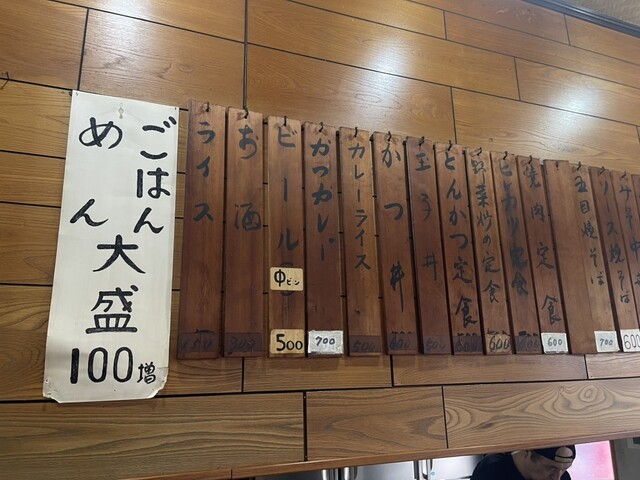 ごはん
めん
大盛
100増
ライス
お酒
ビール
中ビン
500
カツカレー
700
カレーライス
かつ丼
玉子丼
とんかつ定食
野菜炒め定食
600
焼肉定食
600
五目焼そば
700
ソース焼そば
600